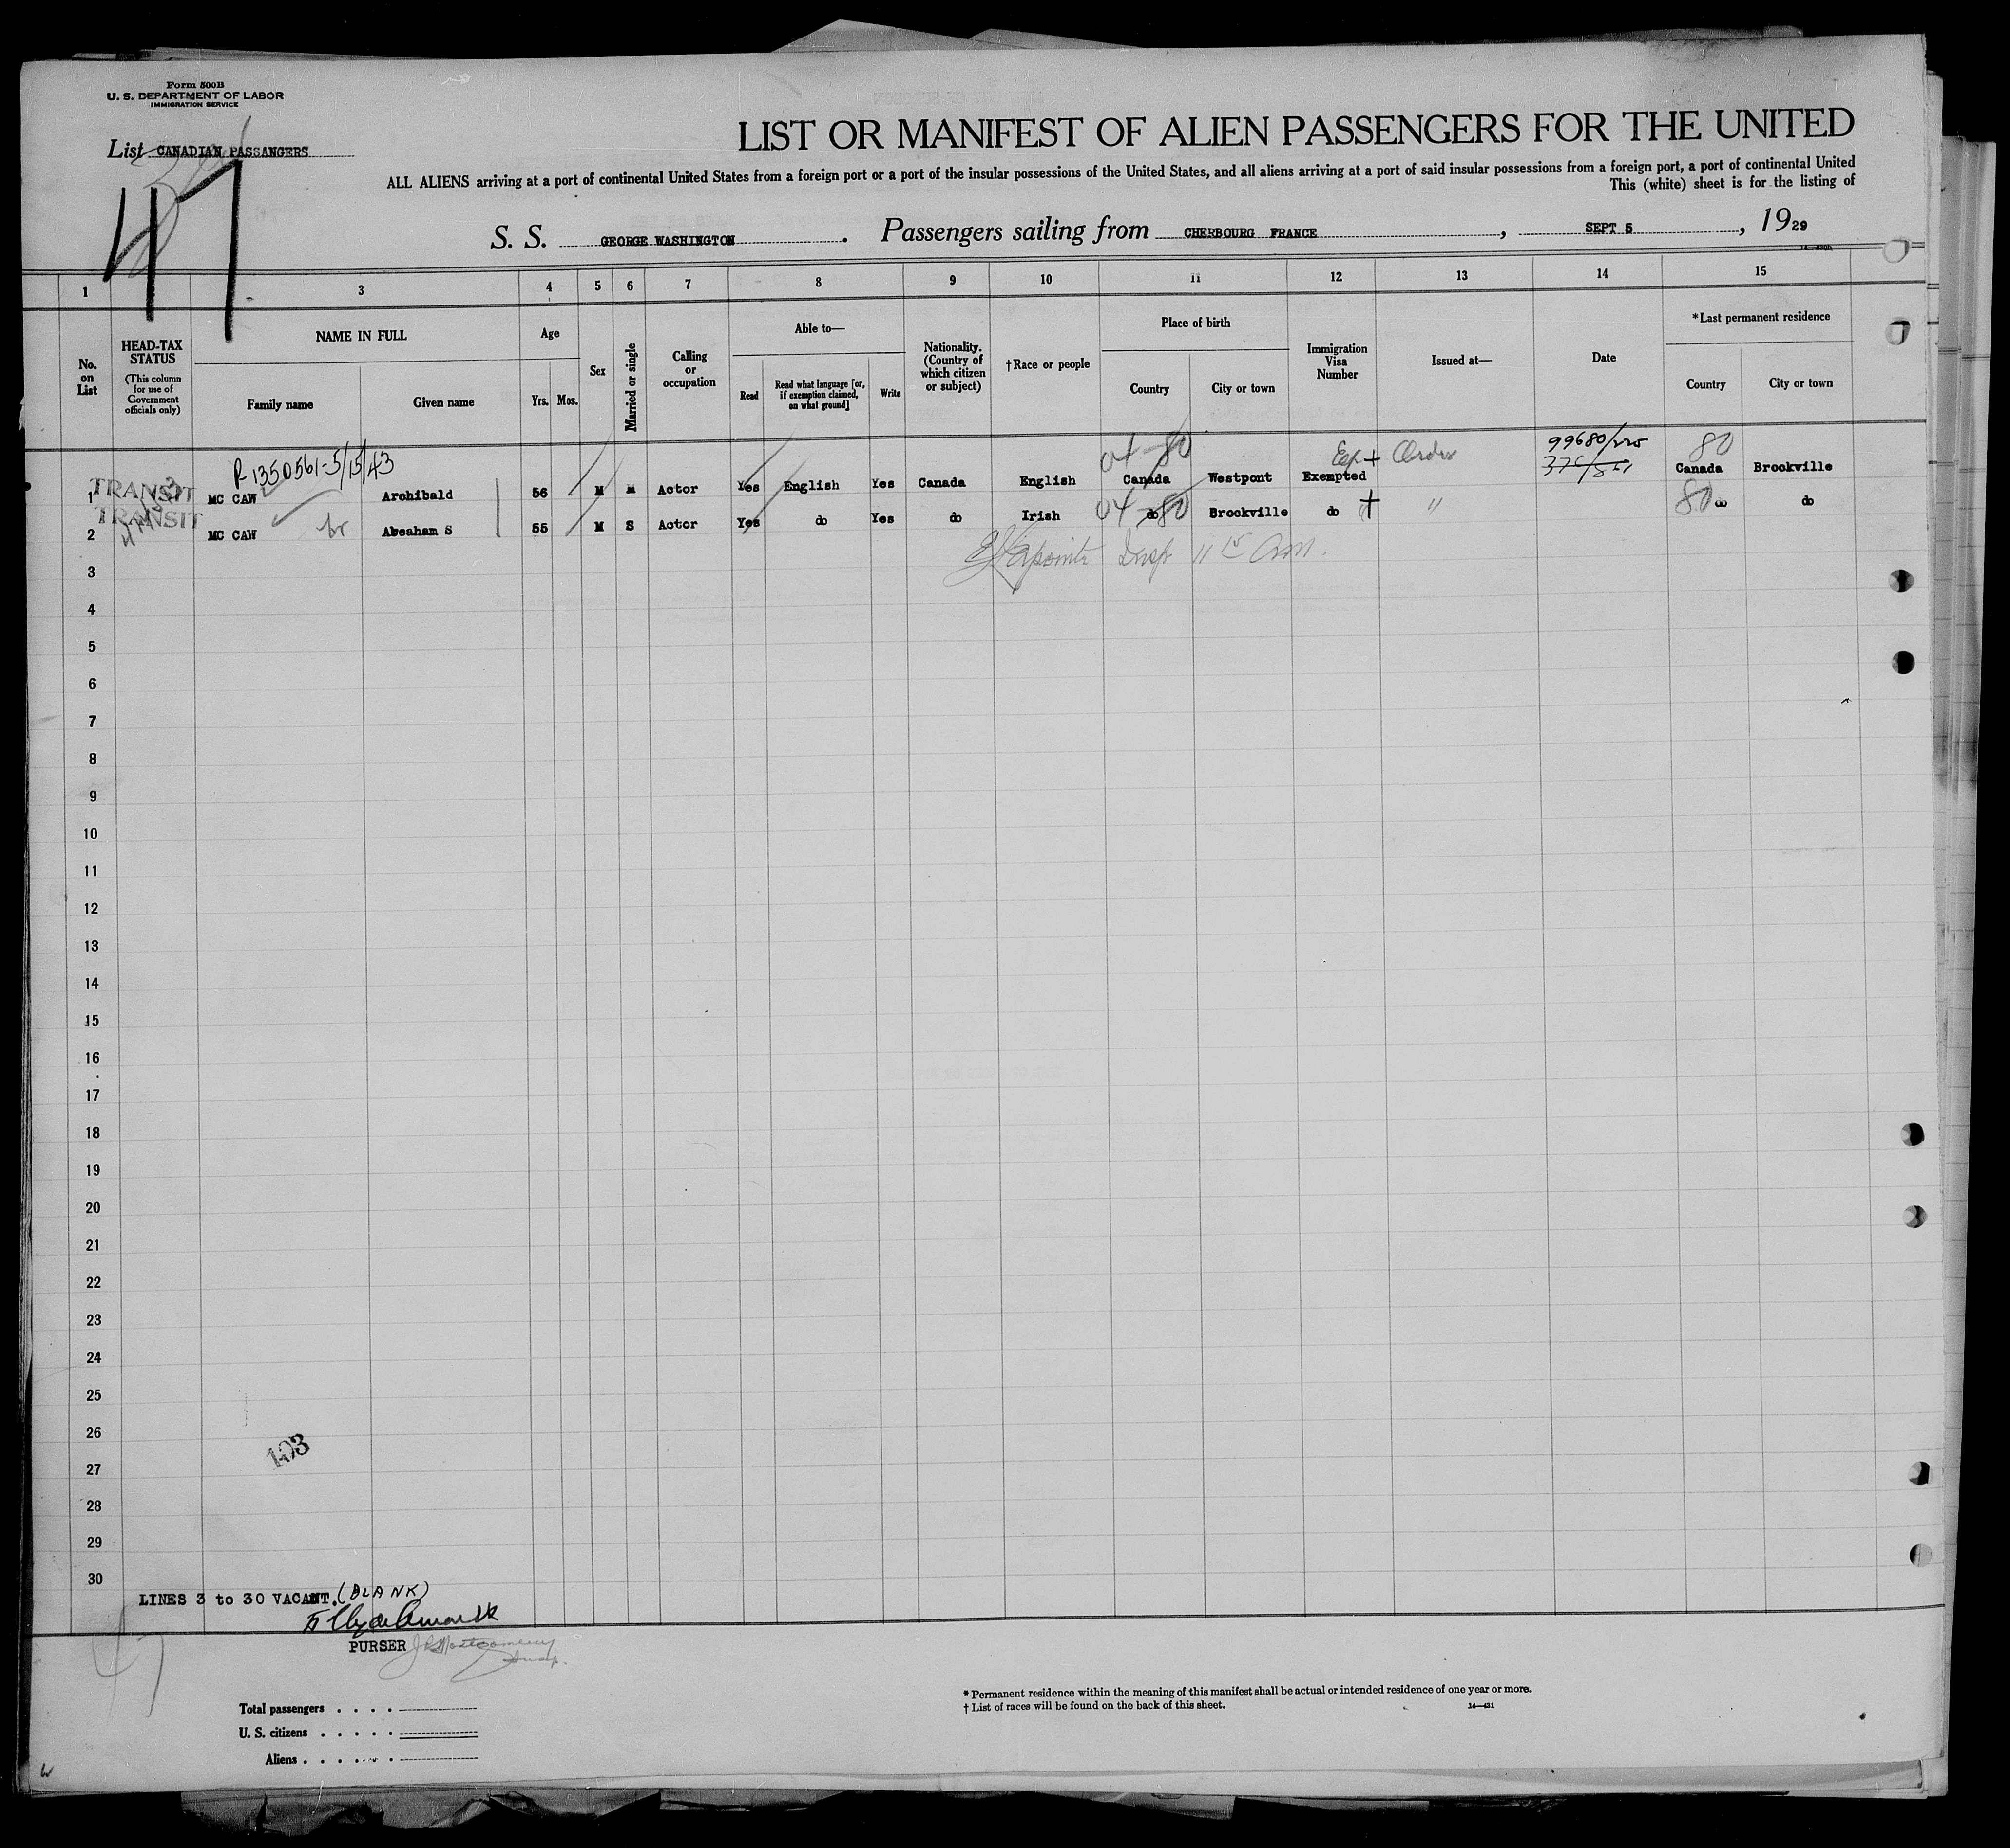 Form 500B
U. S. DEPARTMENT OF LABOR
IMMIGRATION SERVICE
List CANADIAN PASSANGERS
47
LIST OR MANIFEST OF ALIEN PASSENGERS FOR THE UNITED
ALL ALIENS arriving at a port of continental United States from a foreign port or a port of the insular possessions of the United States, and all aliens arriving at a port of said insular possessions from a foreign port, a port of continental United
This (white) sheet is for the listing of
S. S. GEORGE WASHINGTON. Passengers sailing from CHERBOURG FRANCE, SEPT 5, 1929
1 3 4 5 6 7 8 9 10 11 12 13 14 15
No. on List
HEAD-TAX STATUS
(This column for use of Government officials only)
NAME IN FULL
Family name Given name
Age
Yrs. Mos.
Sex
Married or single
Calling or occupation
Able to—
Read Read what language [or, if exemption claimed, on what ground] Write
Nationality. (Country of which citizen or subject)
†Race or people
Place of birth
Country City or town
Immigration Visa Number
Issued at—
Date
*Last permanent residence
Country City or town
R-1350561-5/15/43 04-80 99680/ 80
1 TRANSIT MC CAW Archibald 56 M M Actor Yes English Yes Canada English Canada Westpont Exempted Canada Brookville
2 TRANSIT MC CAW Abeaham S 55 M S Actor Yes do Yes do Irish 04-80 do Brookville do " 80 do do
3
4
5
6
7
8
9
10
11
12
13
14
15
16
17
18
19
20
21
22
23
24
25
26
27
28
29
30
103
LINES 3 to 30 VACANT. (BLANK)
PURSER J Montgomery
Insp.
47
Total passengers . . . .
U. S. citizens . . . . .
Aliens . . . . . .
* Permanent residence within the meaning of this manifest shall be actual or intended residence of one year or more.
† List of races will be found on the back of this sheet.
14—431